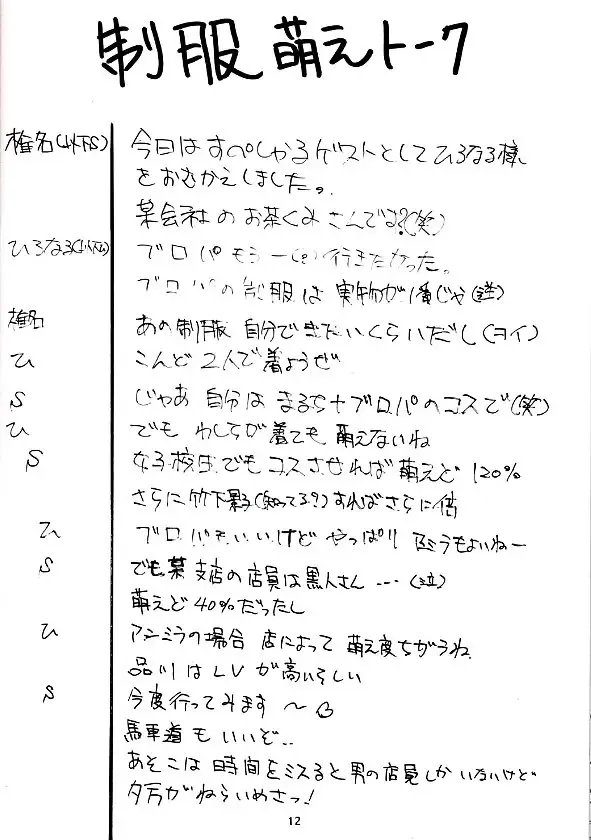 制服 萌えトーク
椎名(以下S) 今日はすぺしゃるゲストとしてひろなる様
をおむかえしましたっ。
某会社のお茶くみさんでる?(笑)
ひろなる(以下ひ) ブロパもう一(?)行きたかった。
ブロパの制服は実物が1番じゃ(泣)
椎名 あの制服 自分できたいくらいだし(ヨイ)
ひ こんど2人で着ようぜ
S じゃあ 自分は まるち+ブロパのコスで(笑)
ひ でも わしらが着ても萌えないね
S 女子校生でもコスさせれば萌えど120%
さらに竹下 (知ってる?)すればさらに倍
ひ ブロパもいいけど やっぱり もよいねー
S でも某支店の店員は黒人さん…(泣)
萌えど40%だったし
ひ アンミラの場合 店によって 萌え度ちがうね
品川はLVが高いらしい
S 今度行ってみます〜
馬車道もいいぞ..
あそこは時間をミスると男の店員しかいないけど
夕方がねらいめさっ!
12